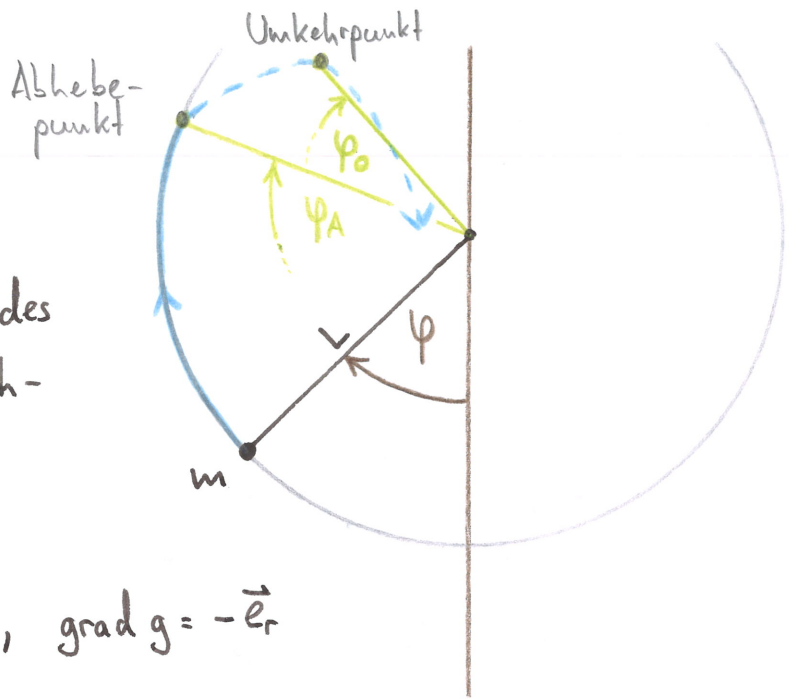 Umkehrpunkt
Abhebe-
punkt
φ₀
φ_A
des
h-
φ
r
m
, grad g = -e⃗ᵣ